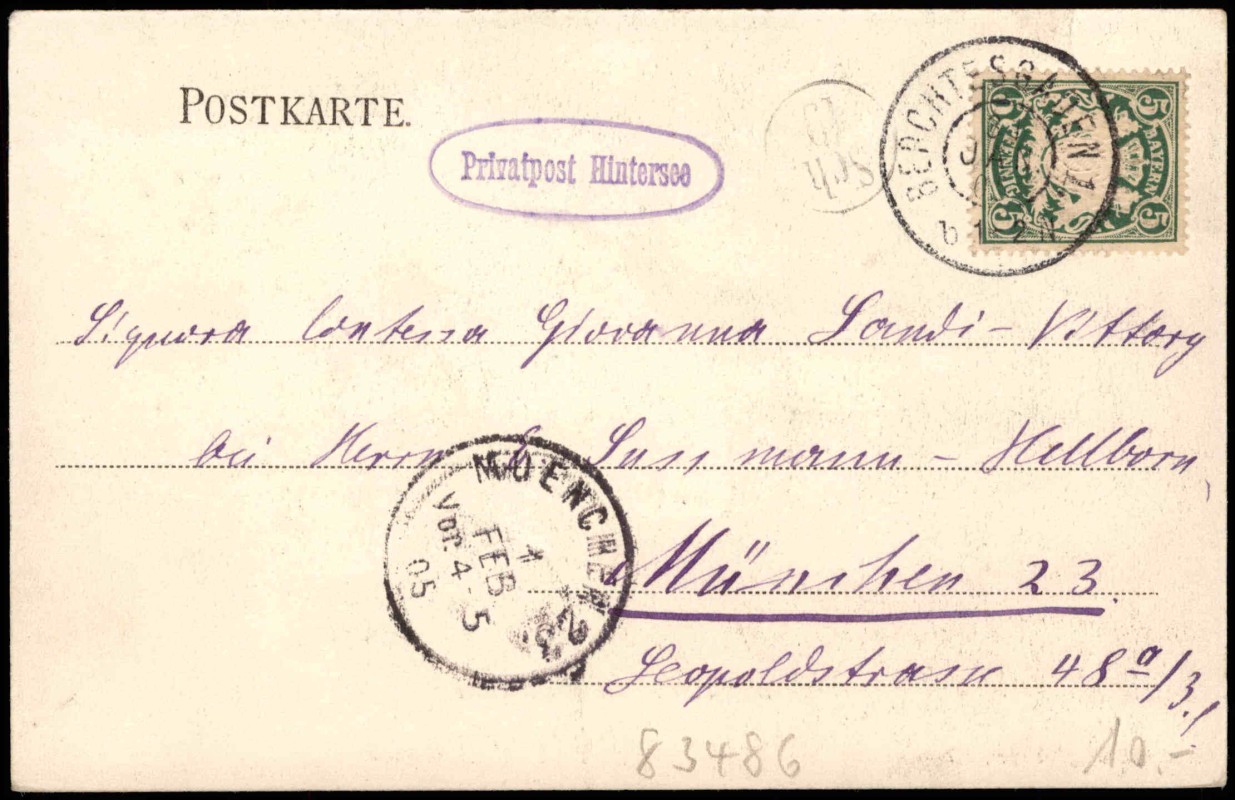 POSTKARTE.
Privatpost Hintersee
13
Sch
BERCHTESGADEN 1
31 JAN
b 1-2 N
5 BAYERN 5
5 PFENNIG 5
Signora Contessa Giovanna Sandi-Vittory
bei Herrn Sussmann-Hellborn,
München 23.
Leopoldstrasse 48a/3.!
MUENCHEN 23
1
FEB
Vor. 4-5
05
83486
10.-